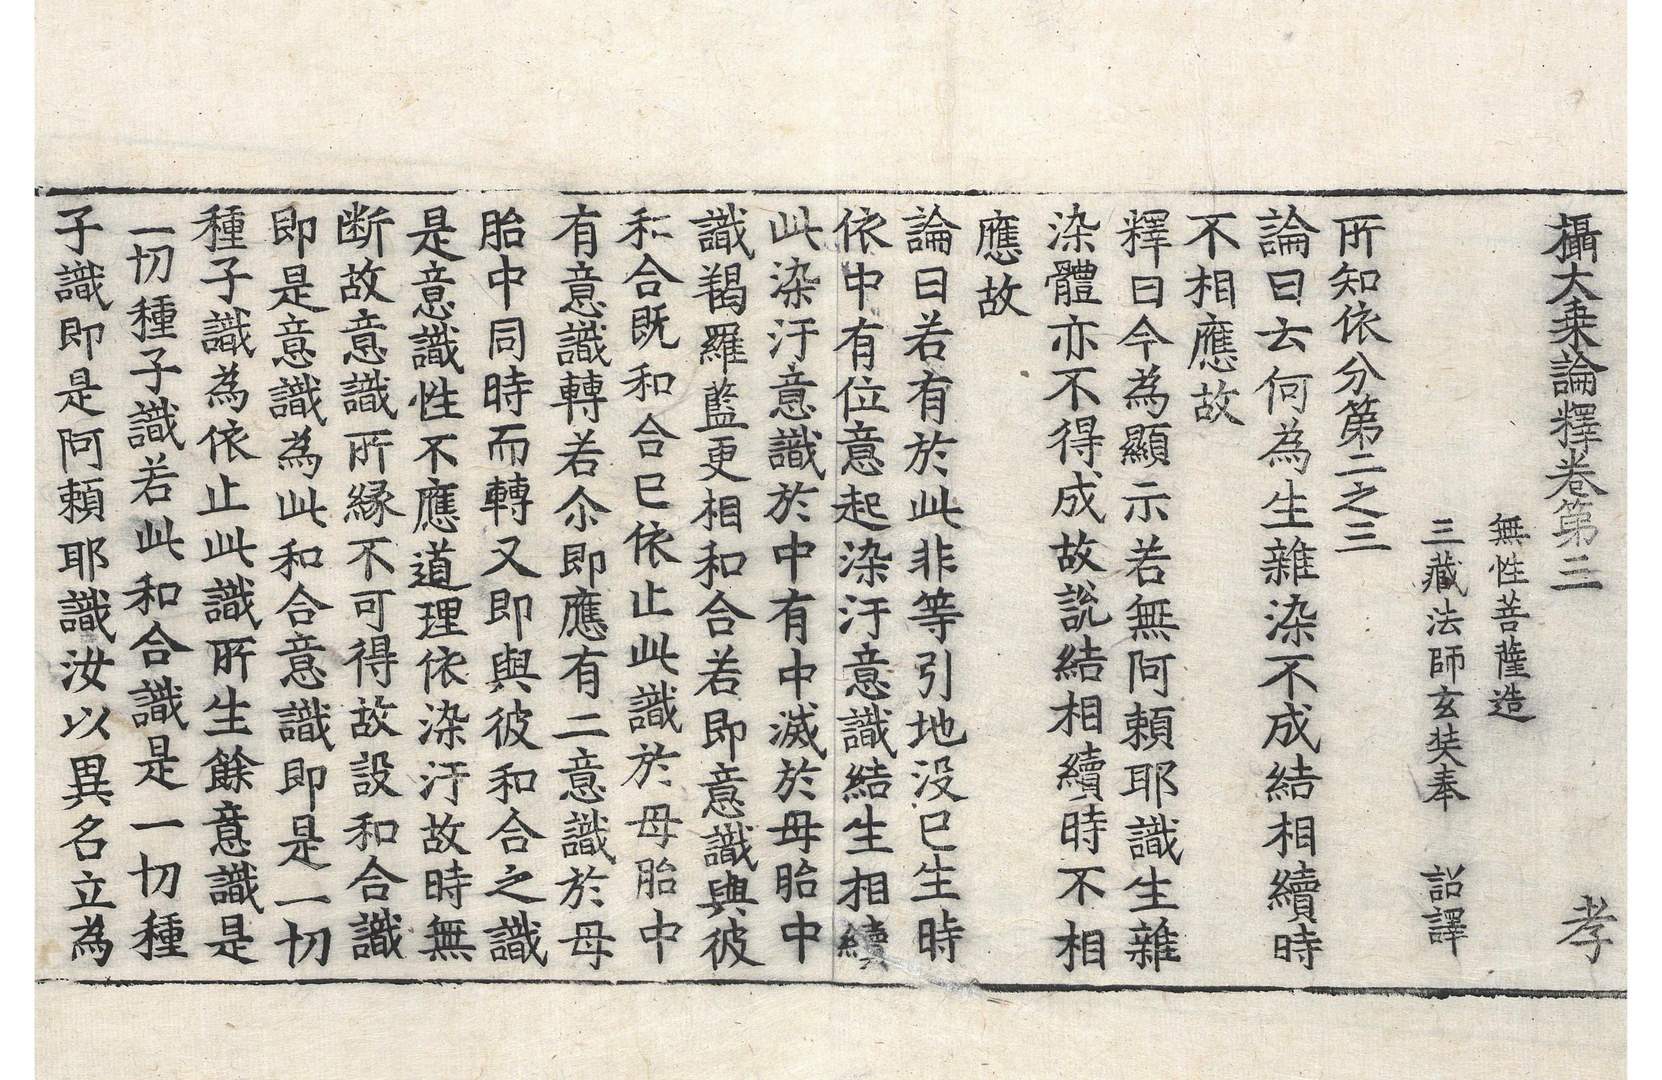 攝大乗論釋卷第三 孝
無性菩薩造
三藏法師玄奘奉 詔譯
所知依分第二之三
論曰云何為生雜染不成結相續時
不相應故
釋曰今為顯示若無阿頼耶識生雜
染體亦不得成故說結相續時不相
應故
論曰若有於此非等引地没已生時
依中有位意起染汙意識結生相續
此染汙意識於中有中滅於母胎中
識羯羅藍更相和合若即意識與彼
和合既和合已依止此識於母胎中
有意識轉若尒即應有二意識於母
胎中同時而轉又即與彼和合之識
是意識性不應道理依染汙故時無
断故意識所縁不可得故設和合識
即是意識為此和合意識即是一切
種子識為依止此識所生餘意識是
一切種子識若此和合識是一切種
子識即是阿頼耶識汝以異名立為